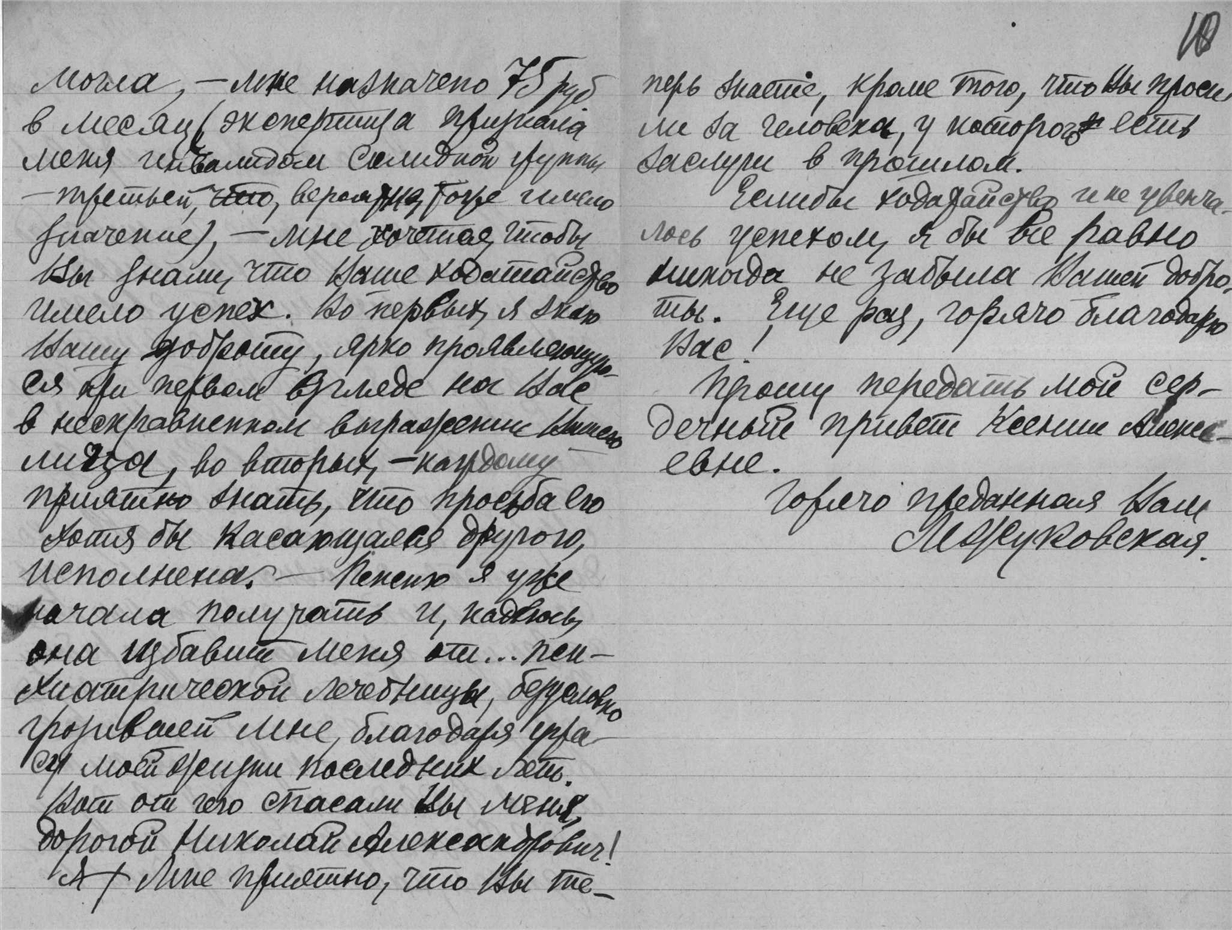 могла, – мне назначено 75 руб
в месяц (экспертиза признала
меня инвалидом солидной группы
– третьей, что, вероятно, тоже имело
значение), – мне хочется, чтобы
Вы знали, что Ваше ходатайство
имело успех. Во первых, я знаю
Вашу доброту, ярко проявляющую-
ся при первом взгляде на Вас
в несравненном выражении Вашего
лица, во вторых, – каждому
приятно знать, что просьба его
хотя бы касающаяся другого,
исполнена. – Пенсию я уже
начала получать и, надеюсь,
она избавит меня от... пси-
хиатрической лечебницы, безусловно
грозившей мне, благодаря ужа-
су моей жизни последних лет.
Вот от чего спасали Вы меня,
дорогой Николай Александрович!
Мне приятно, что Вы те-
10
перь знаете, кроме того, что Вы проси
ли за человека, у которого есть
заслуги в прошлом.
Еслибы ходатайство и не увенча
лось успехом, я бы все равно
никогда не забыла Вашей добро-
ты. Еще раз, горячо благодарю
Вас!
Прошу передать мой сер-
дечный привет Ксении Алексе-
евне.
Горячо преданная Вам
М Жуковская.